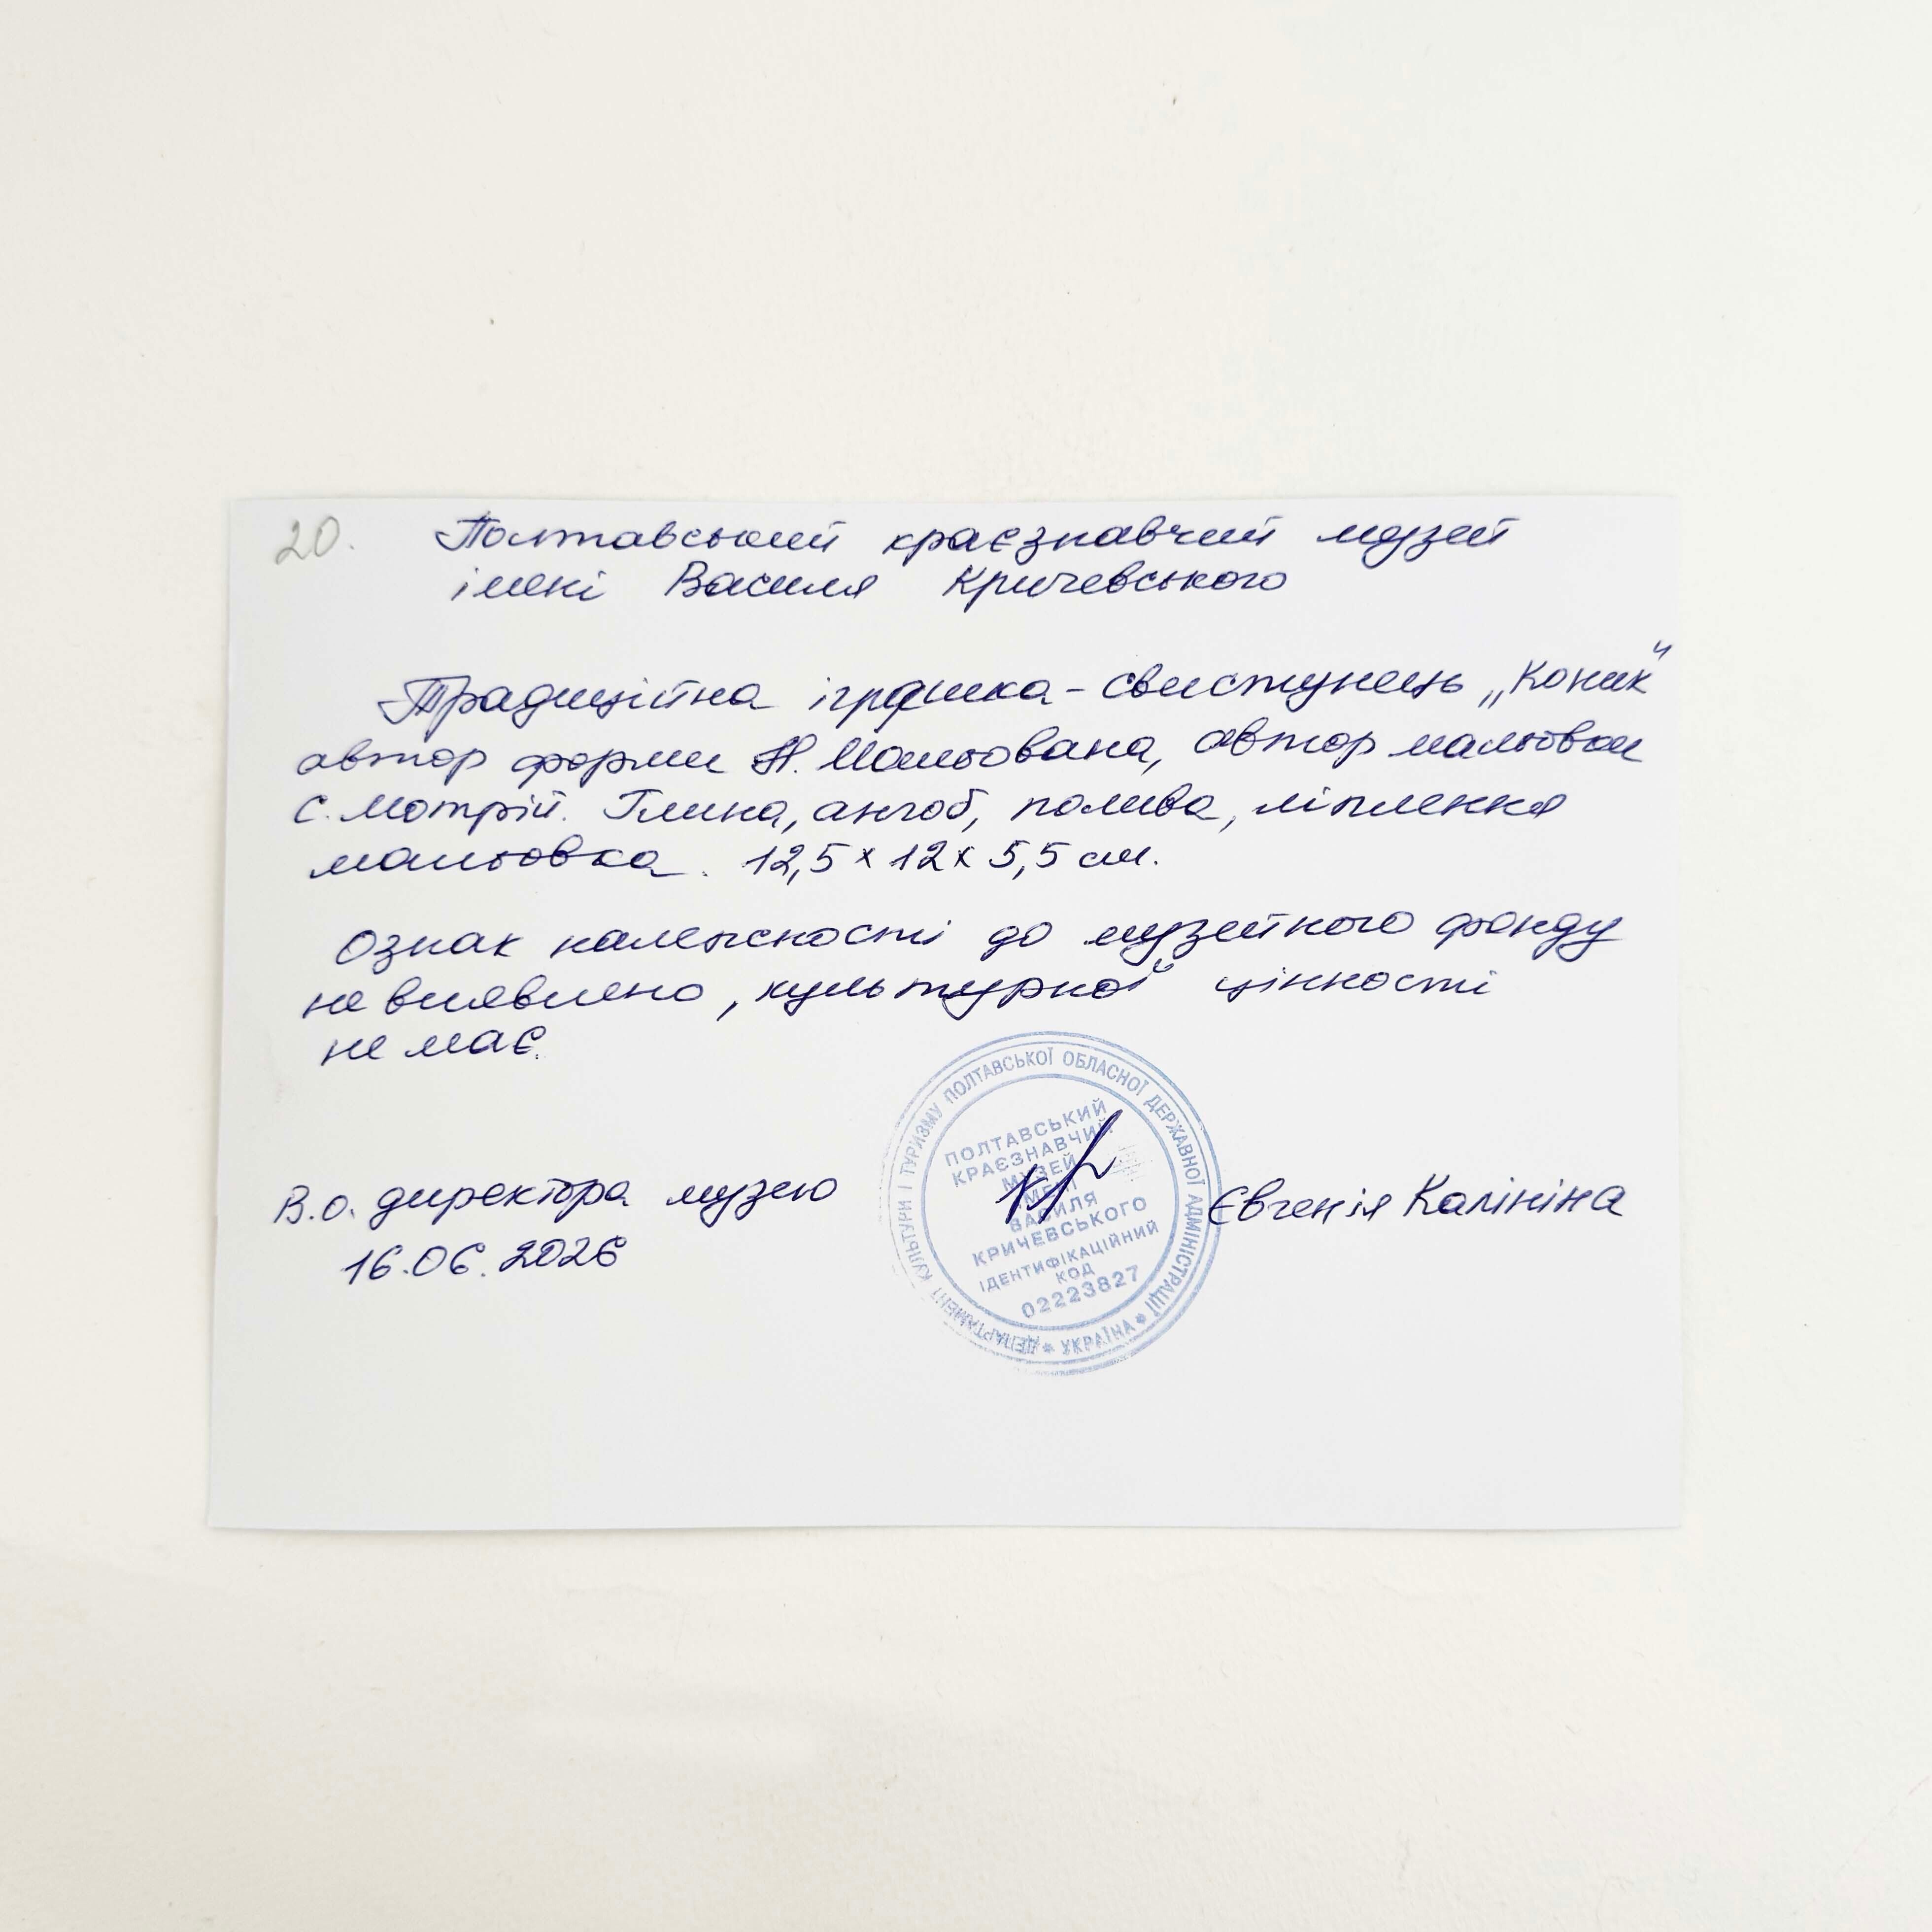 20.
Полтавський краєзнавчий музей
імені Василя Кричевського
Традиційна іграшка - свистунець „Коник"
автор форми Н. Мальована, автор мальовки
С. Мотрій. Глина, ангоб, полива, ліплення
мальовка. 12,5 х 12 х 5,5 см.
Ознак належності до музейного фонду
не виявлено, культурної цінності
не має.
В.о. директора музею
Євгенія Калініна
16.06.2026
* УКРАЇНА * ДЕПАРТАМЕНТ КУЛЬТУРИ І ТУРИЗМУ ПОЛТАВСЬКОЇ ОБЛАСНОЇ ДЕРЖАВНОЇ АДМІНІСТРАЦІЇ
ПОЛТАВСЬКИЙ
КРАЄЗНАВЧИЙ
МУЗЕЙ
ІМЕНІ
ВАСИЛЯ
КРИЧЕВСЬКОГО
ІДЕНТИФІКАЦІЙНИЙ
КОД
02223827